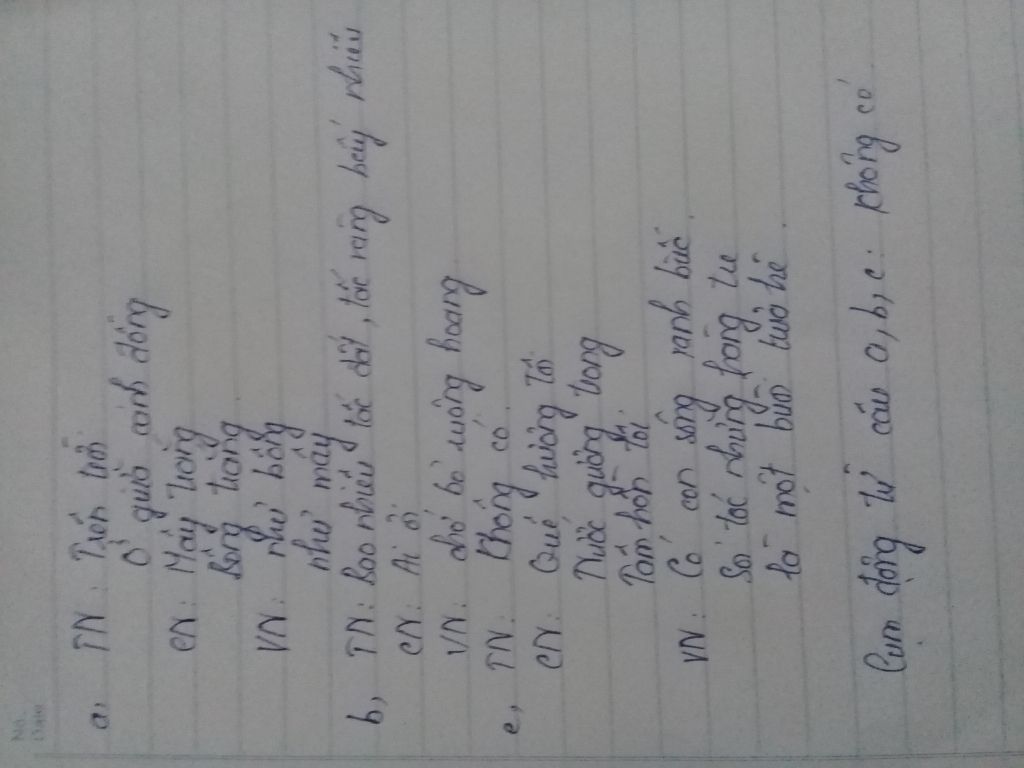 No.
Date
a, TN : Trên trời.
Ở giữa cánh đồng
CN : Mây trắng
Bông trắng
VN : như bông
như mây
b, TN : Bao nhiêu tấc đất, tấc vàng bấy nhiêu
CN : Ai ơi
VN : chớ bỏ ruộng hoang
c, TN : Không có.
CN : Quê hương tôi
Nước gương trong
Tâm hồn tôi.
VN : Có con sông xanh biếc.
Soi tóc những hàng tre
là một buổi trưa hè.
Cụm động từ câu a, b, c : không có